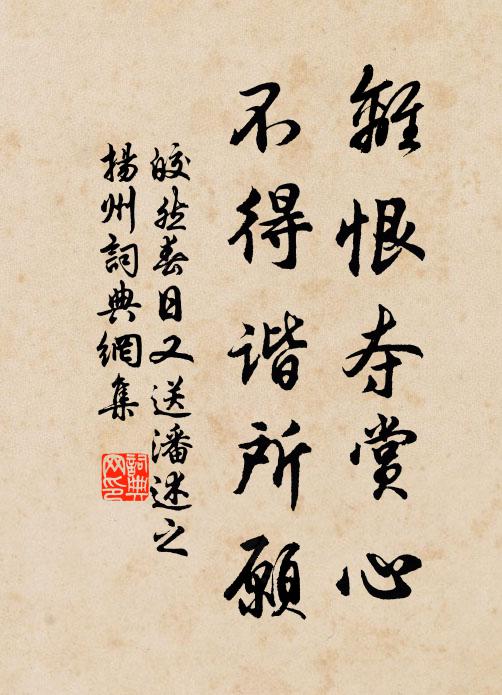 離恨夺賞心
不得谐所願
皎然春日又送潘述之
揚州詞典網集
詞典
网印